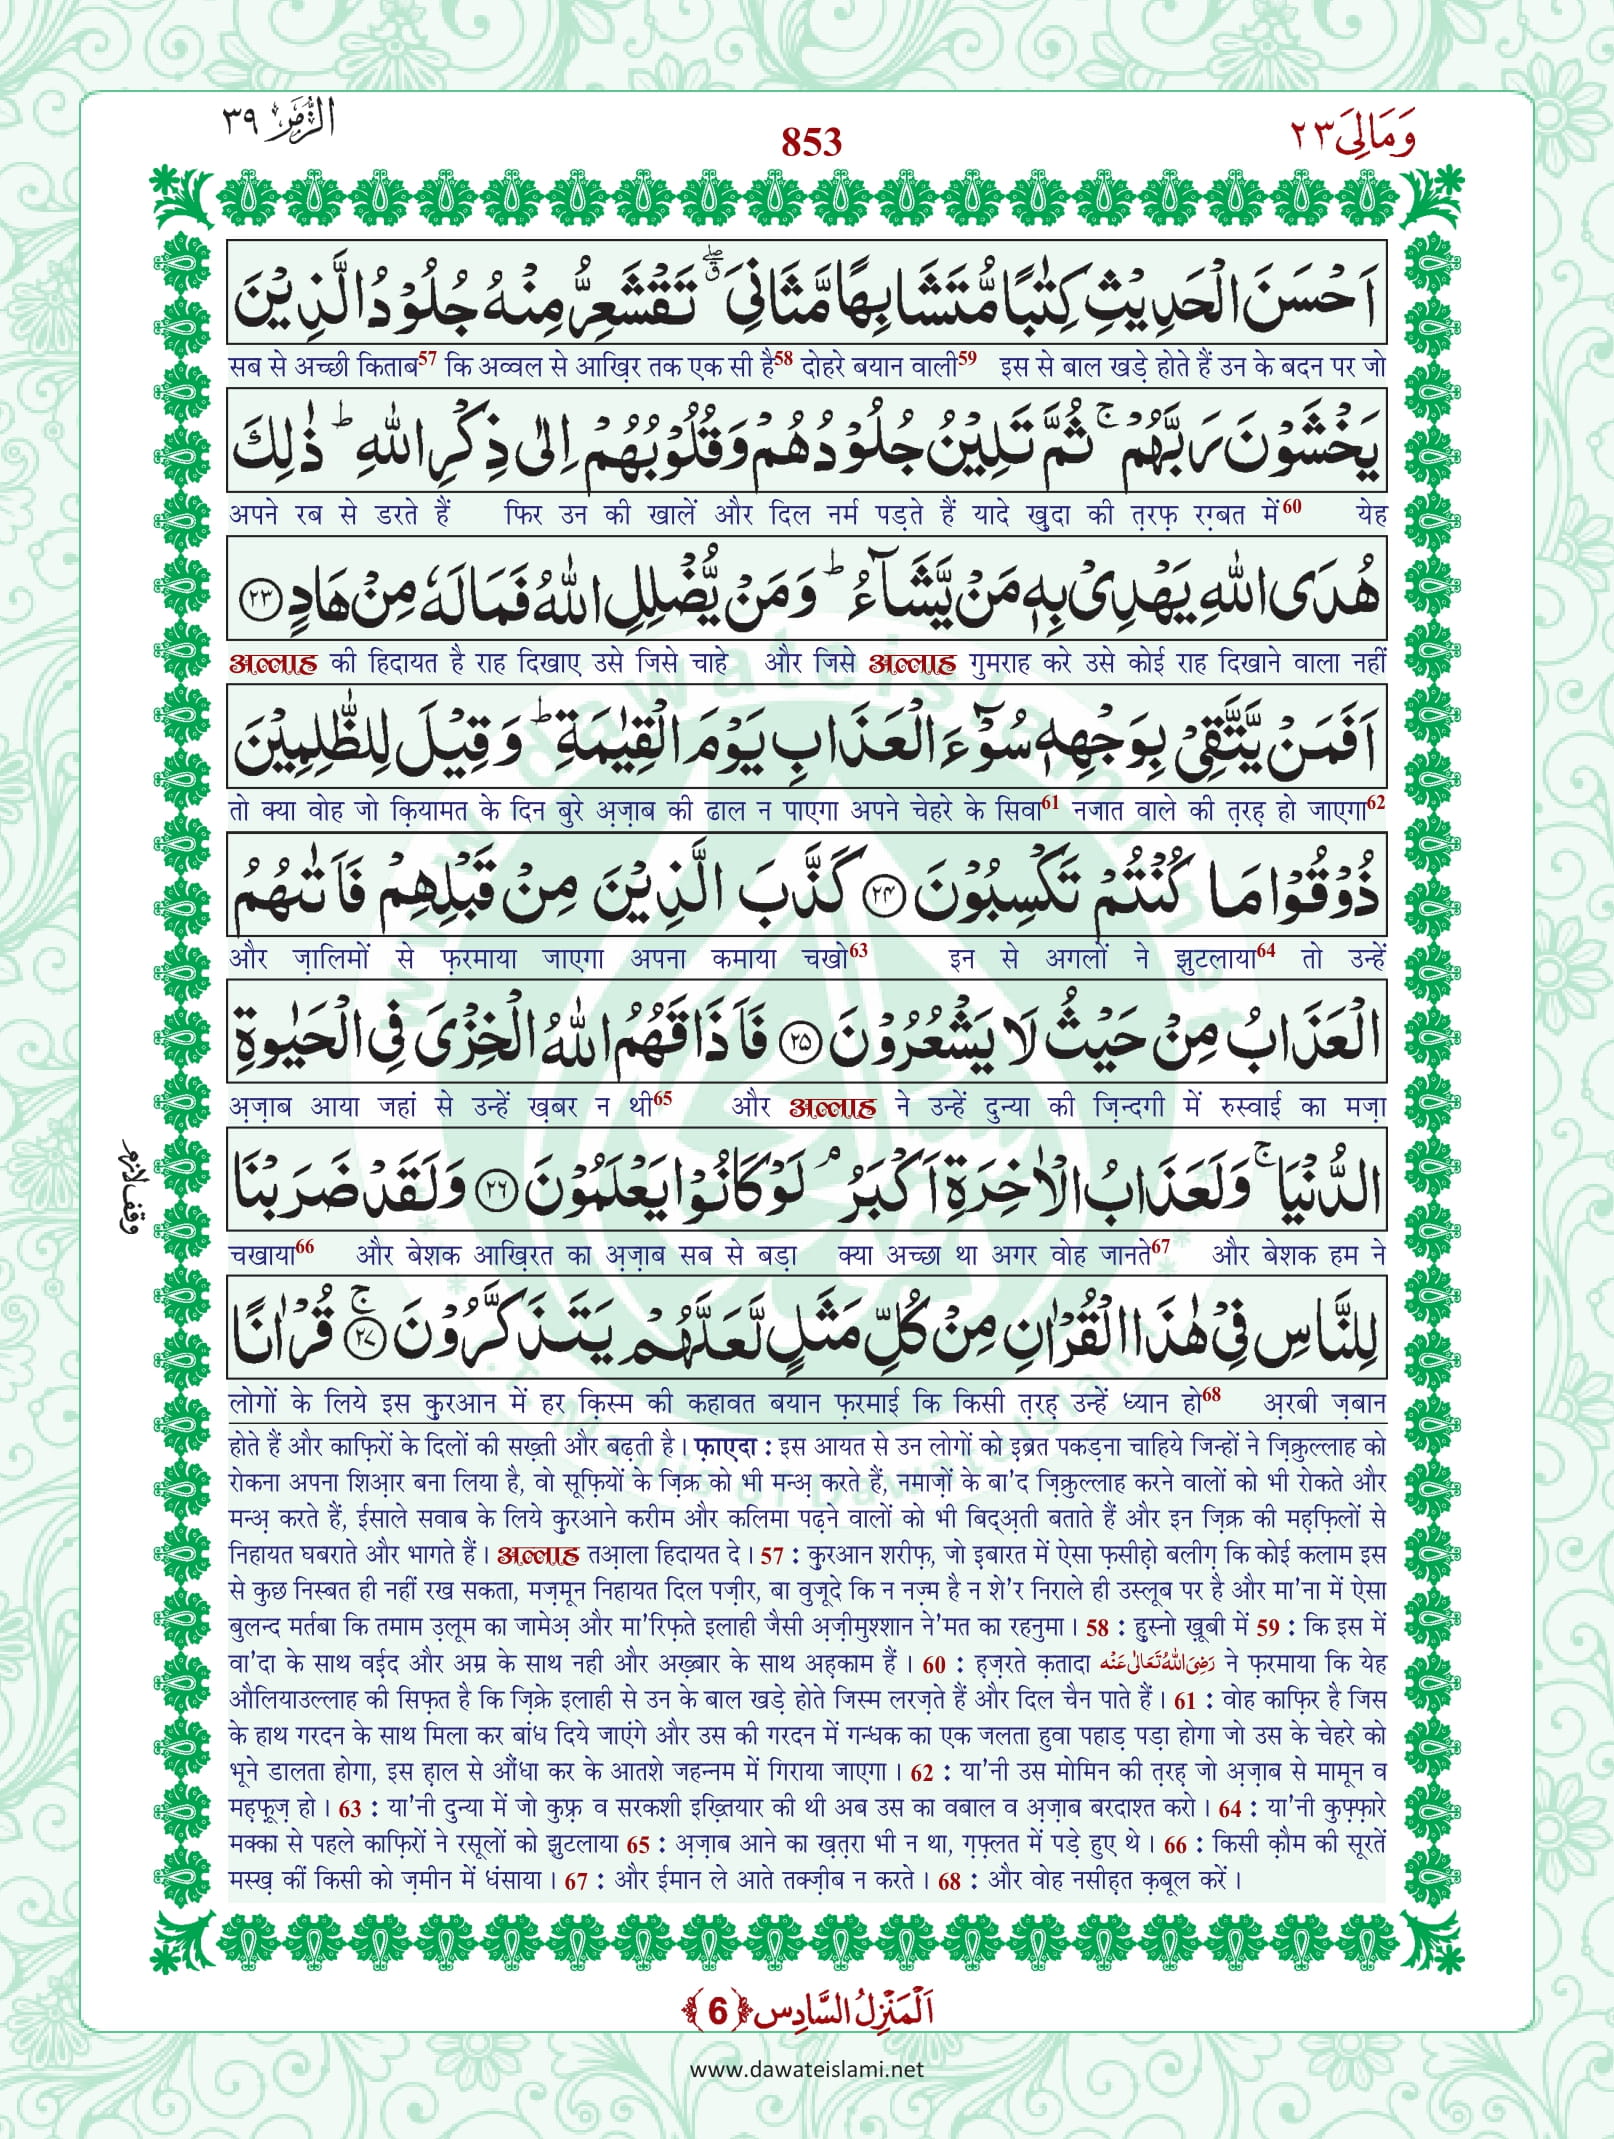 وَمَالِیَ ٢٣
853
الزُّمَر ٣٩
اَحْسَنَ الْحَدِیْثِ كِتٰبًا مُّتَشَابِهًا مَّثَانِیَ ۖۗ تَقْشَعِرُّ مِنْهُ جُلُوْدُ الَّذِیْنَ
सब से अच्छी किताब57 कि अव्वल से आख़िर तक एक सी है58 दोहरे बयान वाली59 इस से बाल खड़े होते हैं उन के बदन पर जो
یَخْشَوْنَ رَبَّهُمْ ۚ ثُمَّ تَلِیْنُ جُلُوْدُهُمْ وَ قُلُوْبُهُمْ اِلٰى ذِكْرِ اللّٰهِ ؕ ذٰلِكَ
अपने रब से डरते हैं फिर उन की खालें और दिल नर्म पड़ते हैं यादे ख़ुदा की त़रफ़ रग़्बत में60 येह
هُدَى اللّٰهِ یَهْدِیْ بِهٖ مَنْ یَّشَآءُ ؕ وَ مَنْ یُّضْلِلِ اللّٰهُ فَمَا لَهٗ مِنْ هَادٍ ﴿۲۳﴾
अल्लाह की हिदायत है राह दिखाए उसे जिसे चाहे और जिसे अल्लाह गुमराह करे उसे कोई राह दिखाने वाला नहीं
اَفَمَنْ یَّتَّقِیْ بِوَجْهِهٖ سُوْٓءَ الْعَذَابِ یَوْمَ الْقِیٰمَةِ ؕ وَ قِیْلَ لِلظّٰلِمِیْنَ
तो क्या वोह जो क़ियामत के दिन बुरे अ़ज़ाब की ढाल न पाएगा अपने चेहरे के सिवा61 नजात वाले की त़रह़ हो जाएगा62
ذُوْقُوْا مَا كُنْتُمْ تَكْسِبُوْنَ ﴿۲۴﴾ كَذَّبَ الَّذِیْنَ مِنْ قَبْلِهِمْ فَاَتٰىهُمُ
और ज़ालिमों से फ़रमाया जाएगा अपना कमाया चखो63 इन से अगलों ने झुटलाया64 तो उन्हें
الْعَذَابُ مِنْ حَیْثُ لَا یَشْعُرُوْنَ ﴿۲۵﴾ فَاَذَاقَهُمُ اللّٰهُ الْخِزْیَ فِی الْحَیٰوةِ
अ़ज़ाब आया जहां से उन्हें ख़बर न थी65 और अल्लाह ने उन्हें दुन्या की ज़िन्दगी में रुस्वाई का मज़ा
الدُّنْیَا ۚ وَ لَعَذَابُ الْاٰخِرَةِ اَكْبَرُ ۘ لَوْ كَانُوْا یَعْلَمُوْنَ ﴿۲۶﴾ وَ لَقَدْ ضَرَبْنَا
وقف لازم
चखाया66 और बेशक आख़िरत का अ़ज़ाब सब से बड़ा क्या अच्छा था अगर वोह जानते67 और बेशक हम ने
لِلنَّاسِ فِیْ هٰذَا الْقُرْاٰنِ مِنْ كُلِّ مَثَلٍ لَّعَلَّهُمْ یَتَذَكَّرُوْنَ ﴿ۚ۲۷﴾ قُرْاٰنًا
लोगों के लिये इस क़ुरआन में हर क़िस्म की कहावत बयान फ़रमाई कि किसी त़रह़ उन्हें ध्यान हो68 अ़रबी ज़बान
होते हैं और काफ़िरों के दिलों की सख़्ती और बढ़ती है। फ़ाएदा : इस आयत से उन लोगों को इ़ब्रत पकड़ना चाहिये जिन्हों ने ज़िक्रुल्लाह को
रोकना अपना शिआ़र बना लिया है, वो सूफ़ियों के ज़िक्र को भी मन्अ़ करते हैं, नमाज़ों के बा'द ज़िक्रुल्लाह करने वालों को भी रोकते और
मन्अ़ करते हैं, ईसाले सवाब के लिये क़ुरआने करीम और कलिमा पढ़ने वालों को भी बिद्अ़ती बताते हैं और इन ज़िक्र की मह़फ़िलों से
निहायत घबराते और भागते हैं। अल्लाह तआ़ला हिदायत दे। 57 : क़ुरआन शरीफ़, जो इबारत में ऐसा फ़सीह़ो बलीग़ कि कोई कलाम इस
से कुछ निस्बत ही नहीं रख सकता, मज़मून निहायत दिल पज़ीर, बा वुजूदे कि न नज़्म है न शे'र निराले ही उस्लूब पर है और मा'ना में ऐसा
बुलन्द मर्तबा कि तमाम उ़लूम का जामेअ़ और मा'रिफ़ते इलाही जैसी अ़ज़ीमुश्शान ने'मत का रहनुमा। 58 : ह़ुस्नो ख़ूबी में 59 : कि इस में
वा'दा के साथ वई़द और अम्र के साथ नही और अख़्बार के साथ अह़काम हैं। 60 : ह़ज़रते क़तादा رَضِیَ اللّٰهُ تَعَالٰی عَنْه ने फ़रमाया कि येह
औलियाउल्लाह की सिफ़त है कि ज़िक्रे इलाही से उन के बाल खड़े होते जिस्म लरज़ते हैं और दिल चैन पाते हैं। 61 : वोह काफ़िर है जिस
के हाथ गरदन के साथ मिला कर बांध दिये जाएंगे और उस की गरदन में गन्धक का एक जलता हुवा पहाड़ पड़ा होगा जो उस के चेहरे को
भूने डालता होगा, इस ह़ाल से औंधा कर के आतशे जहन्नम में गिराया जाएगा। 62 : या'नी उस मोमिन की त़रह़ जो अ़ज़ाब से मामून व
मह़फ़ूज़ हो। 63 : या'नी दुन्या में जो कुफ़्र व सरकशी इख़्तियार की थी अब उस का वबाल व अ़ज़ाब बरदाश्त करो। 64 : या'नी कुफ़्फ़ारे
मक्का से पहले काफ़िरों ने रसूलों को झुटलाया 65 : अ़ज़ाब आने का ख़त़रा भी न था, ग़फ़्लत में पड़े हुए थे। 66 : किसी क़ौम की सूरतें
मस्ख़ कीं किसी को ज़मीन में धंसाया। 67 : और ईमान ले आते तक्ज़ीब न करते। 68 : और वोह नसीह़त क़बूल करें।
اَلْمَنْزِلُ السَّادِس ﴿6﴾
www.dawateislami.net